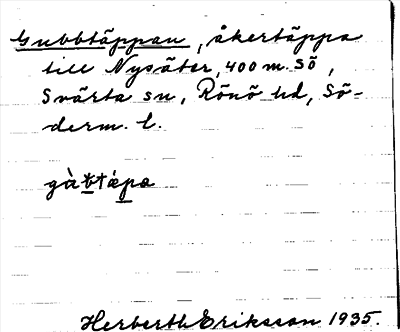 Gubbtäppan, åkertäppa
till Nysäter, 400 m. SÖ,
Svärta sn, Rönö hd, Sö-
derm. l.
gàbtápa
Herberth Eriksson 1935.